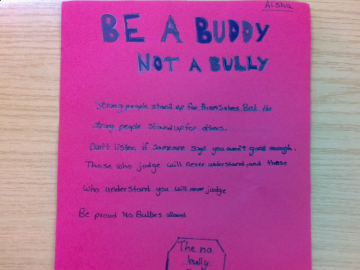 Aisha
BE A BUDDY
NOT A BULLY
Strong people stand up for themselves. But the
strong people stand up for others.
Don't listen if someone says you aren't good enough.
Those who judge will never understand, and those
who understand you will never judge
Be proud No Bullies allowed
The no
bully